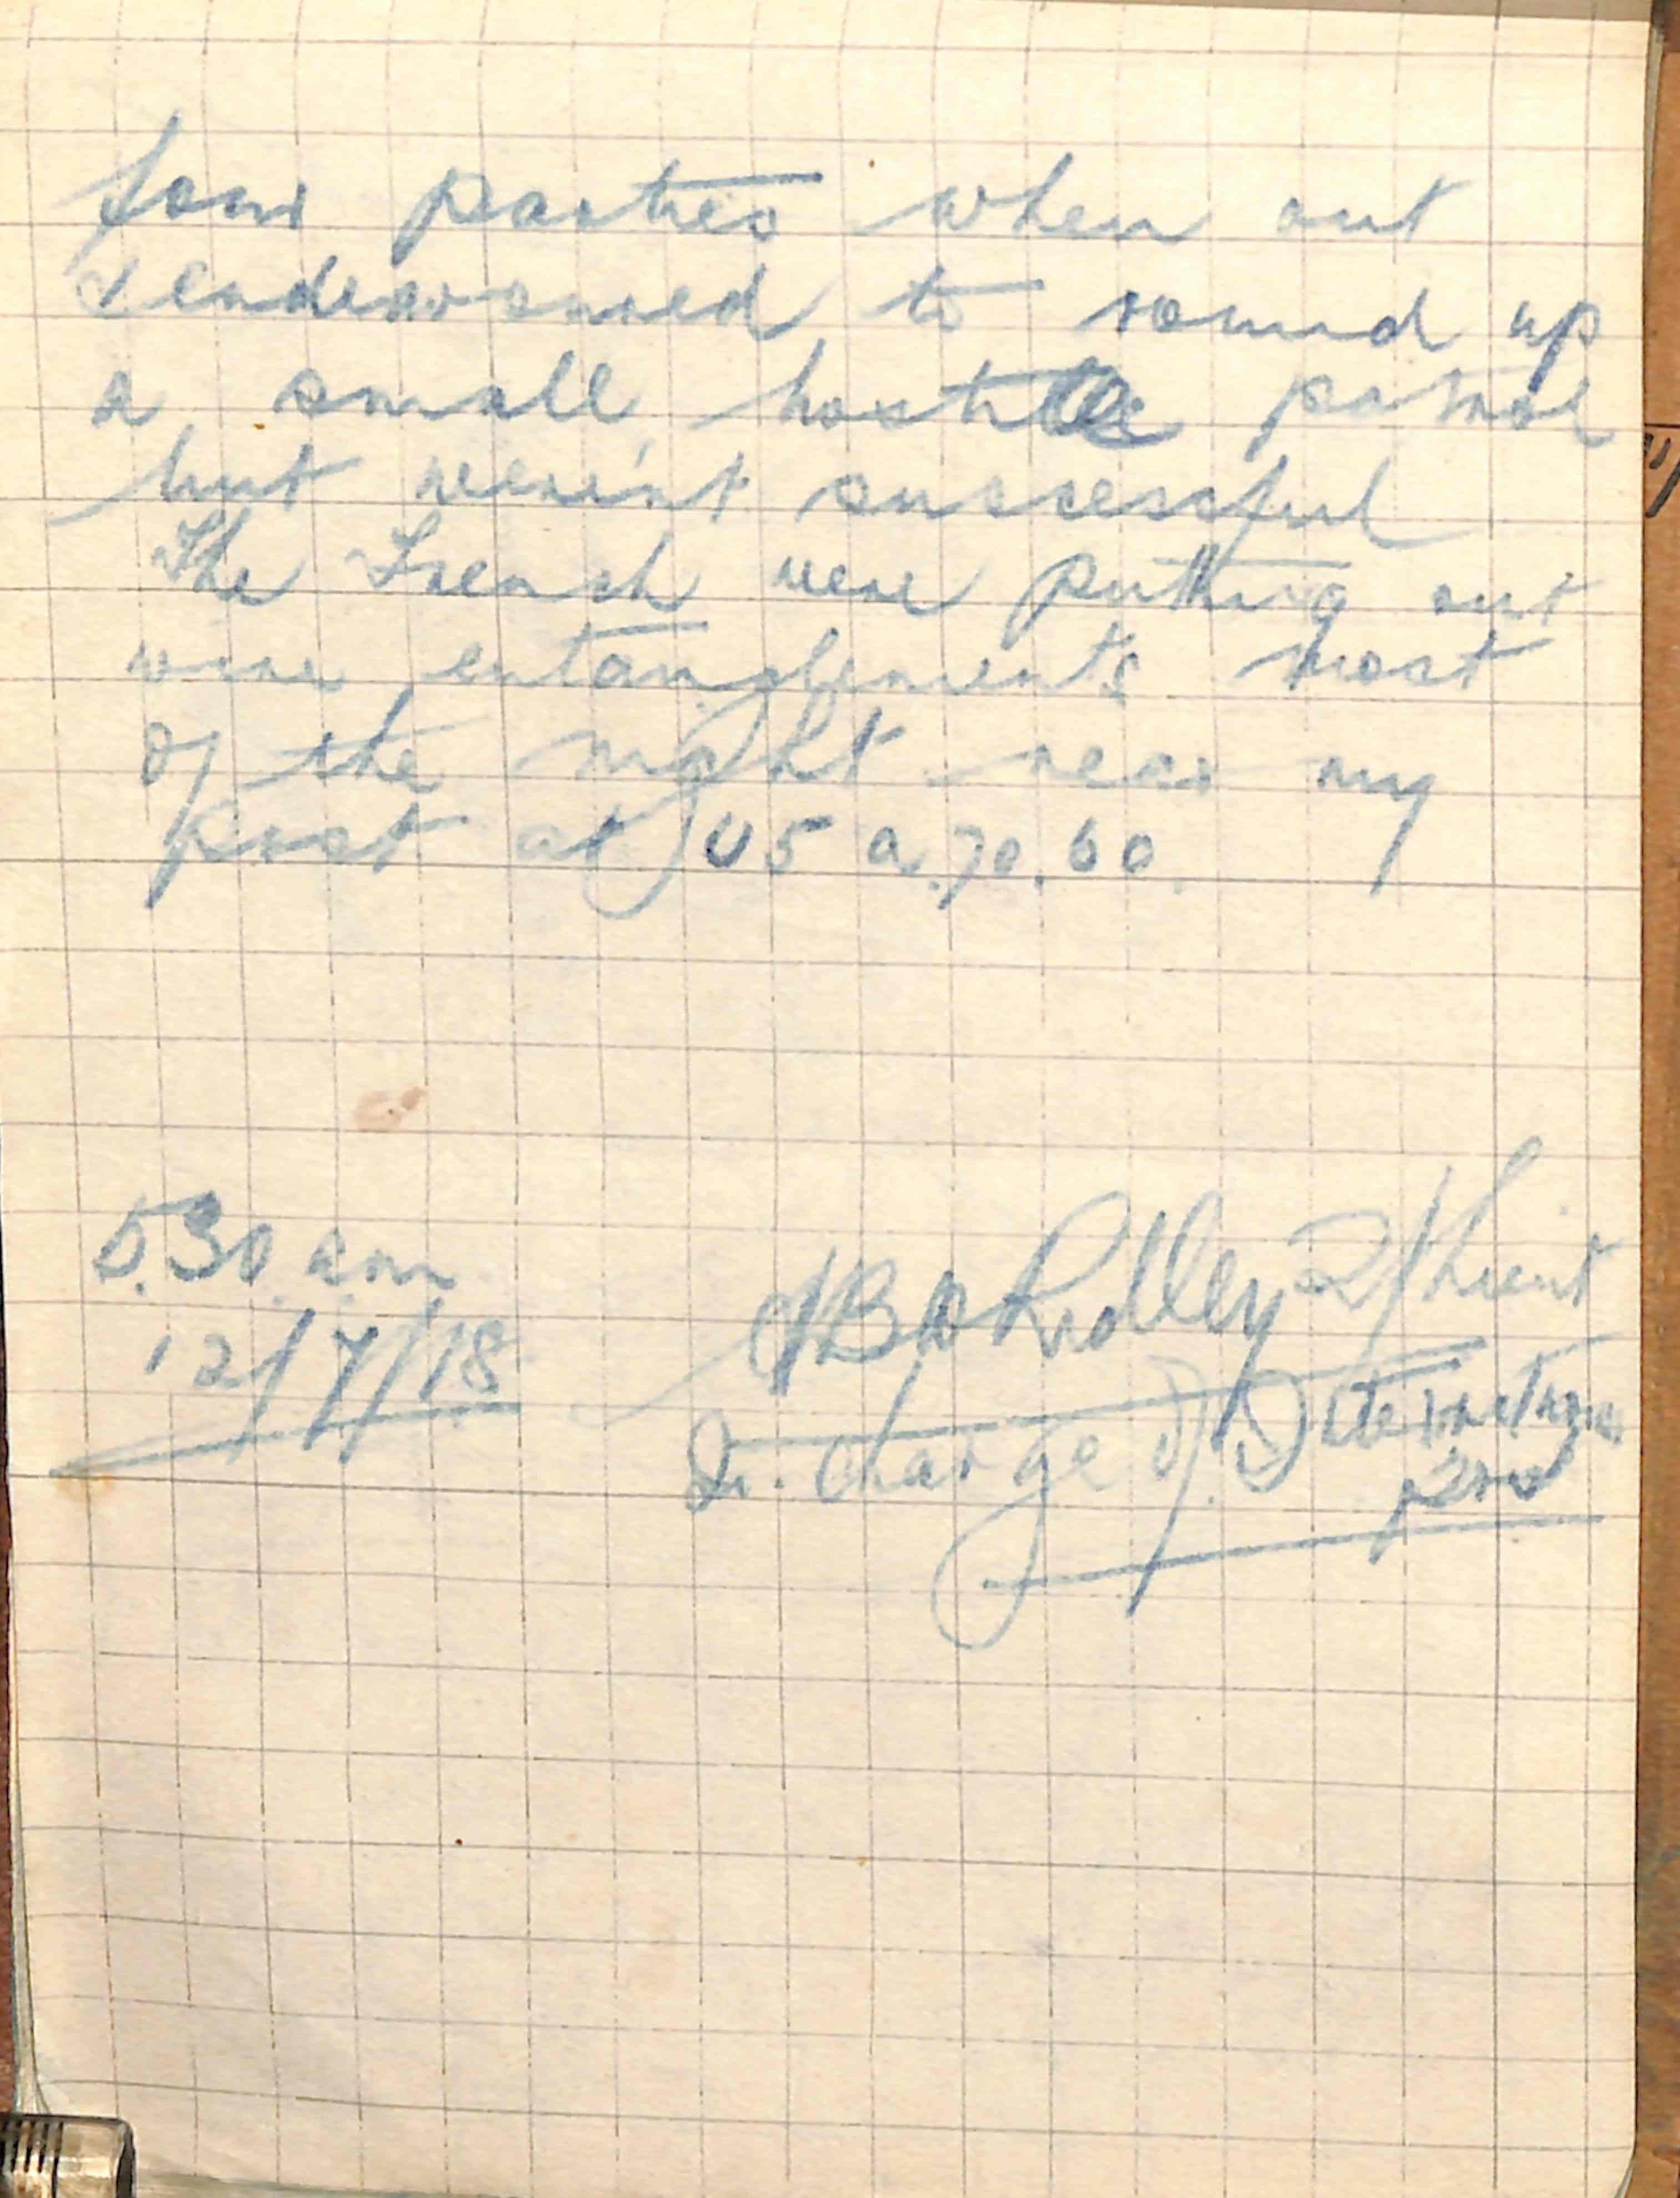 four parties when out
& endeavoured to round up
a small hostile patrol
but weren't successful
The French were putting out
wire entanglements most
of the night near my
post at U5 a.70.60.
5.30 am
12/7/18
Ridley 2/Lieut
In charge of